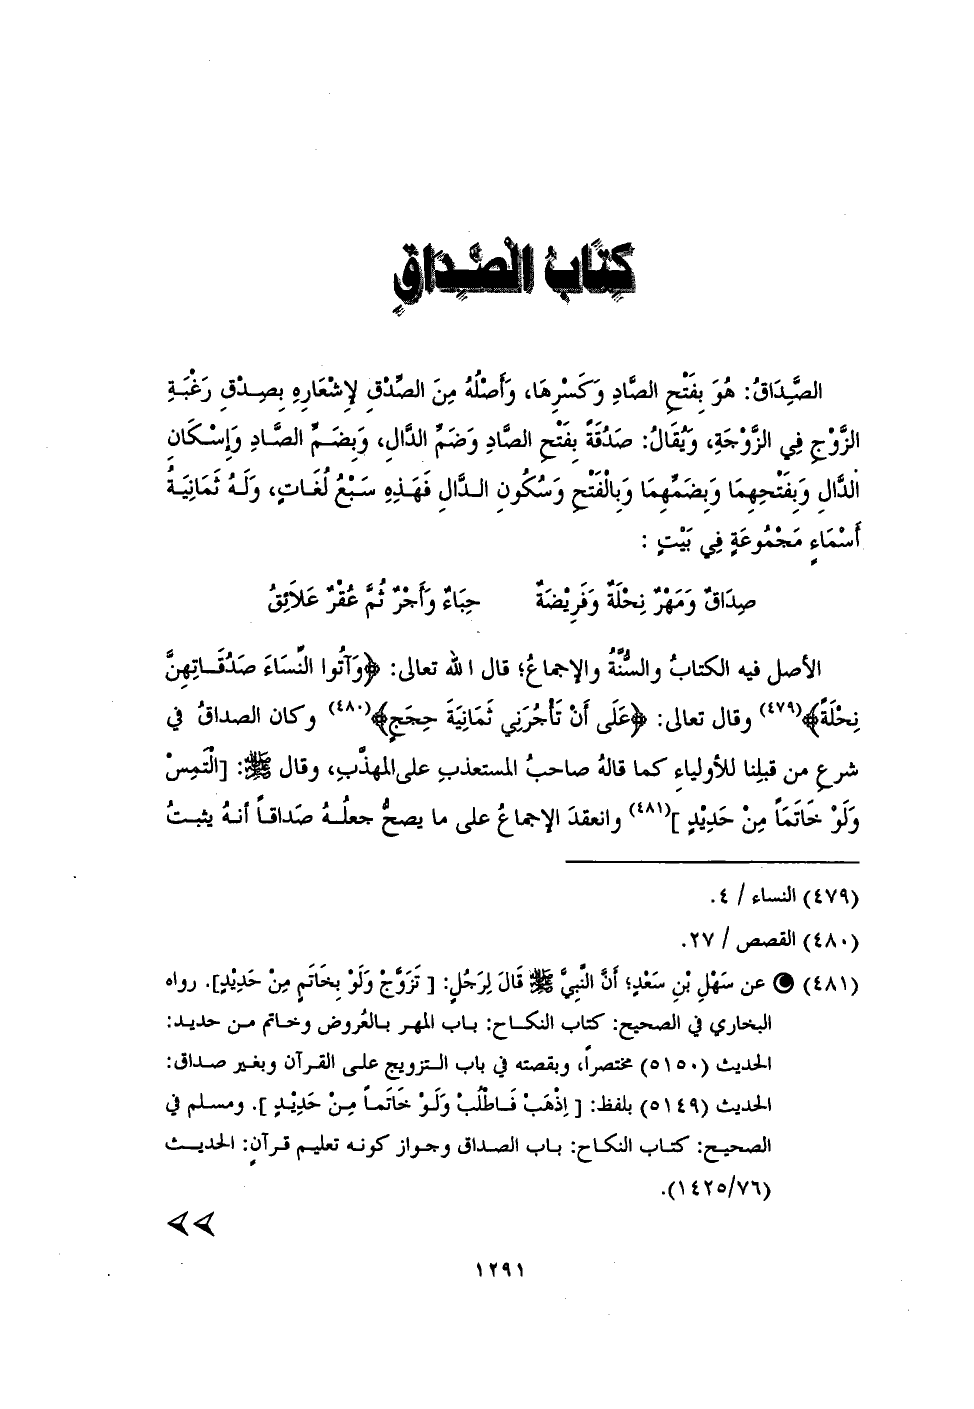 كِتَابُ الصَّدَاقِ
الصَِّدَاقُ: هُوَ بِفَتْحِ الصَّادِ وَكَسْرِهَا، وَأَصْلُهُ مِنَ الصِّدْقِ لِإِشْعَارِهِ بِصِدْقِ رَغْبَةِ
الزَّوْجِ فِي الزَّوْجَةِ، وَيُقَالُ: صَدُقَةً بِفَتْحِ الصَّادِ وَضَمِّ الدَّالِ، وَبِضَمِّ الصَّادِ وَإِسْكَانِ
الدَّالِ وَبِفَتْحِهِمَا وَبِضَمِّهِمَا وَبِالْفَتْحِ وَسُكُونِ الدَّالِ فَهَذِهِ سَبْعُ لُغَاتٍ، وَلَهُ ثَمَانِيَةُ
أَسْمَاءٍ مَجْمُوعَةٍ فِي بَيْتٍ :
صِدَاقٌ وَمَهْرٌ نِحْلَةٌ وَفَرِيْضَةٌ حِبَاءٌ وَأَجْرٌ ثُمَّ عُقْرٌ عَلاَئِقُ
الأصل فيه الكتابُ والسنَّةُ والإجماعُ؛ قال الله تعالى: ﴿وَآتُوا النِّسَاءَ صَدُقَاتِهِنَّ
نِحْلَةً﴾(٤٧٩) وقال تعالى: ﴿عَلَى أَنْ تَأْجُرَنِي ثَمَانِيَةَ حِجَجٍ﴾(٤٨٠) وكان الصداقُ في
شرعِ من قبلِنا للأولياءِ كما قالهُ صاحبُ المستعذبِ على المهذَّبِ، وقال ﷺ: [الْتَمِسْ
وَلَوْ خَاتَمَاً مِنْ حَدِيْدٍ ](٤٨١) وانعقدَ الإجماعُ على ما يصحُّ جعلُهُ صَداقاً أنهُ يثبتُ
(٤٧٩) النساء / ٤.
(٤٨٠) القصص / ٢٧.
(٤٨١) عن سَهْلِ بْنِ سَعْدٍ؛ أَنَّ النَّبِيَّ ﷺ قَالَ لِرَجُلٍ: [ تَزَوَّجْ وَلَوْ بِخَاتَمٍ مِنْ حَدِيْدٍ]. رواه
البخاري في الصحيح: كتاب النكاح: باب المهر بالعُروض وخاتم من حديد:
الحديث (٥١٥٠) مختصراً، وبقصته في باب التزويج على القرآن وبغير صداق:
الحديث (٥١٤٩) بلفظ: [ اِذْهَبْ فَاطْلُبْ وَلَوْ خَاتَماً مِنْ حَدِيْدٍ ]. ومسلم في
الصحيح: كتاب النكاح: باب الصداق وجواز كونه تعليم قرآنٍ: الحديث
(١٤٢٥/٧٦).
١٢٩١